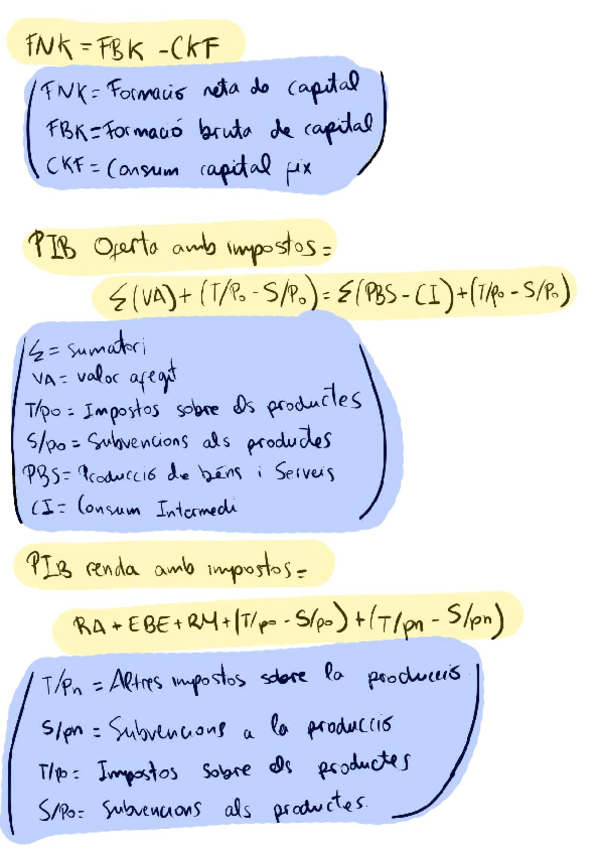 FNK = FBK - CKF
FNK = Formació neta de capital
FBK = Formació bruta de capital
CKF = Consum capital fix
PIB Oferta amb impostos =
Σ(VA) + (T/Po - S/Po) = Σ(PBS - CI) + (T/Po - S/Po)
Σ = sumatori
VA = valor afegit
T/po = Impostos sobre els productes
S/po = Subvencions als productes
PBS = Producció de béns i Serveis
CI = Consum Intermedi
PIB renda amb impostos =
RA + EBE + RM + (T/po - S/po) + (T/pn - S/pn)
T/Pn = Altres impostos sobre la producció
S/pn = Subvencions a la producció
T/po = Impostos sobre els productes
S/Po = Subvencions als productes.